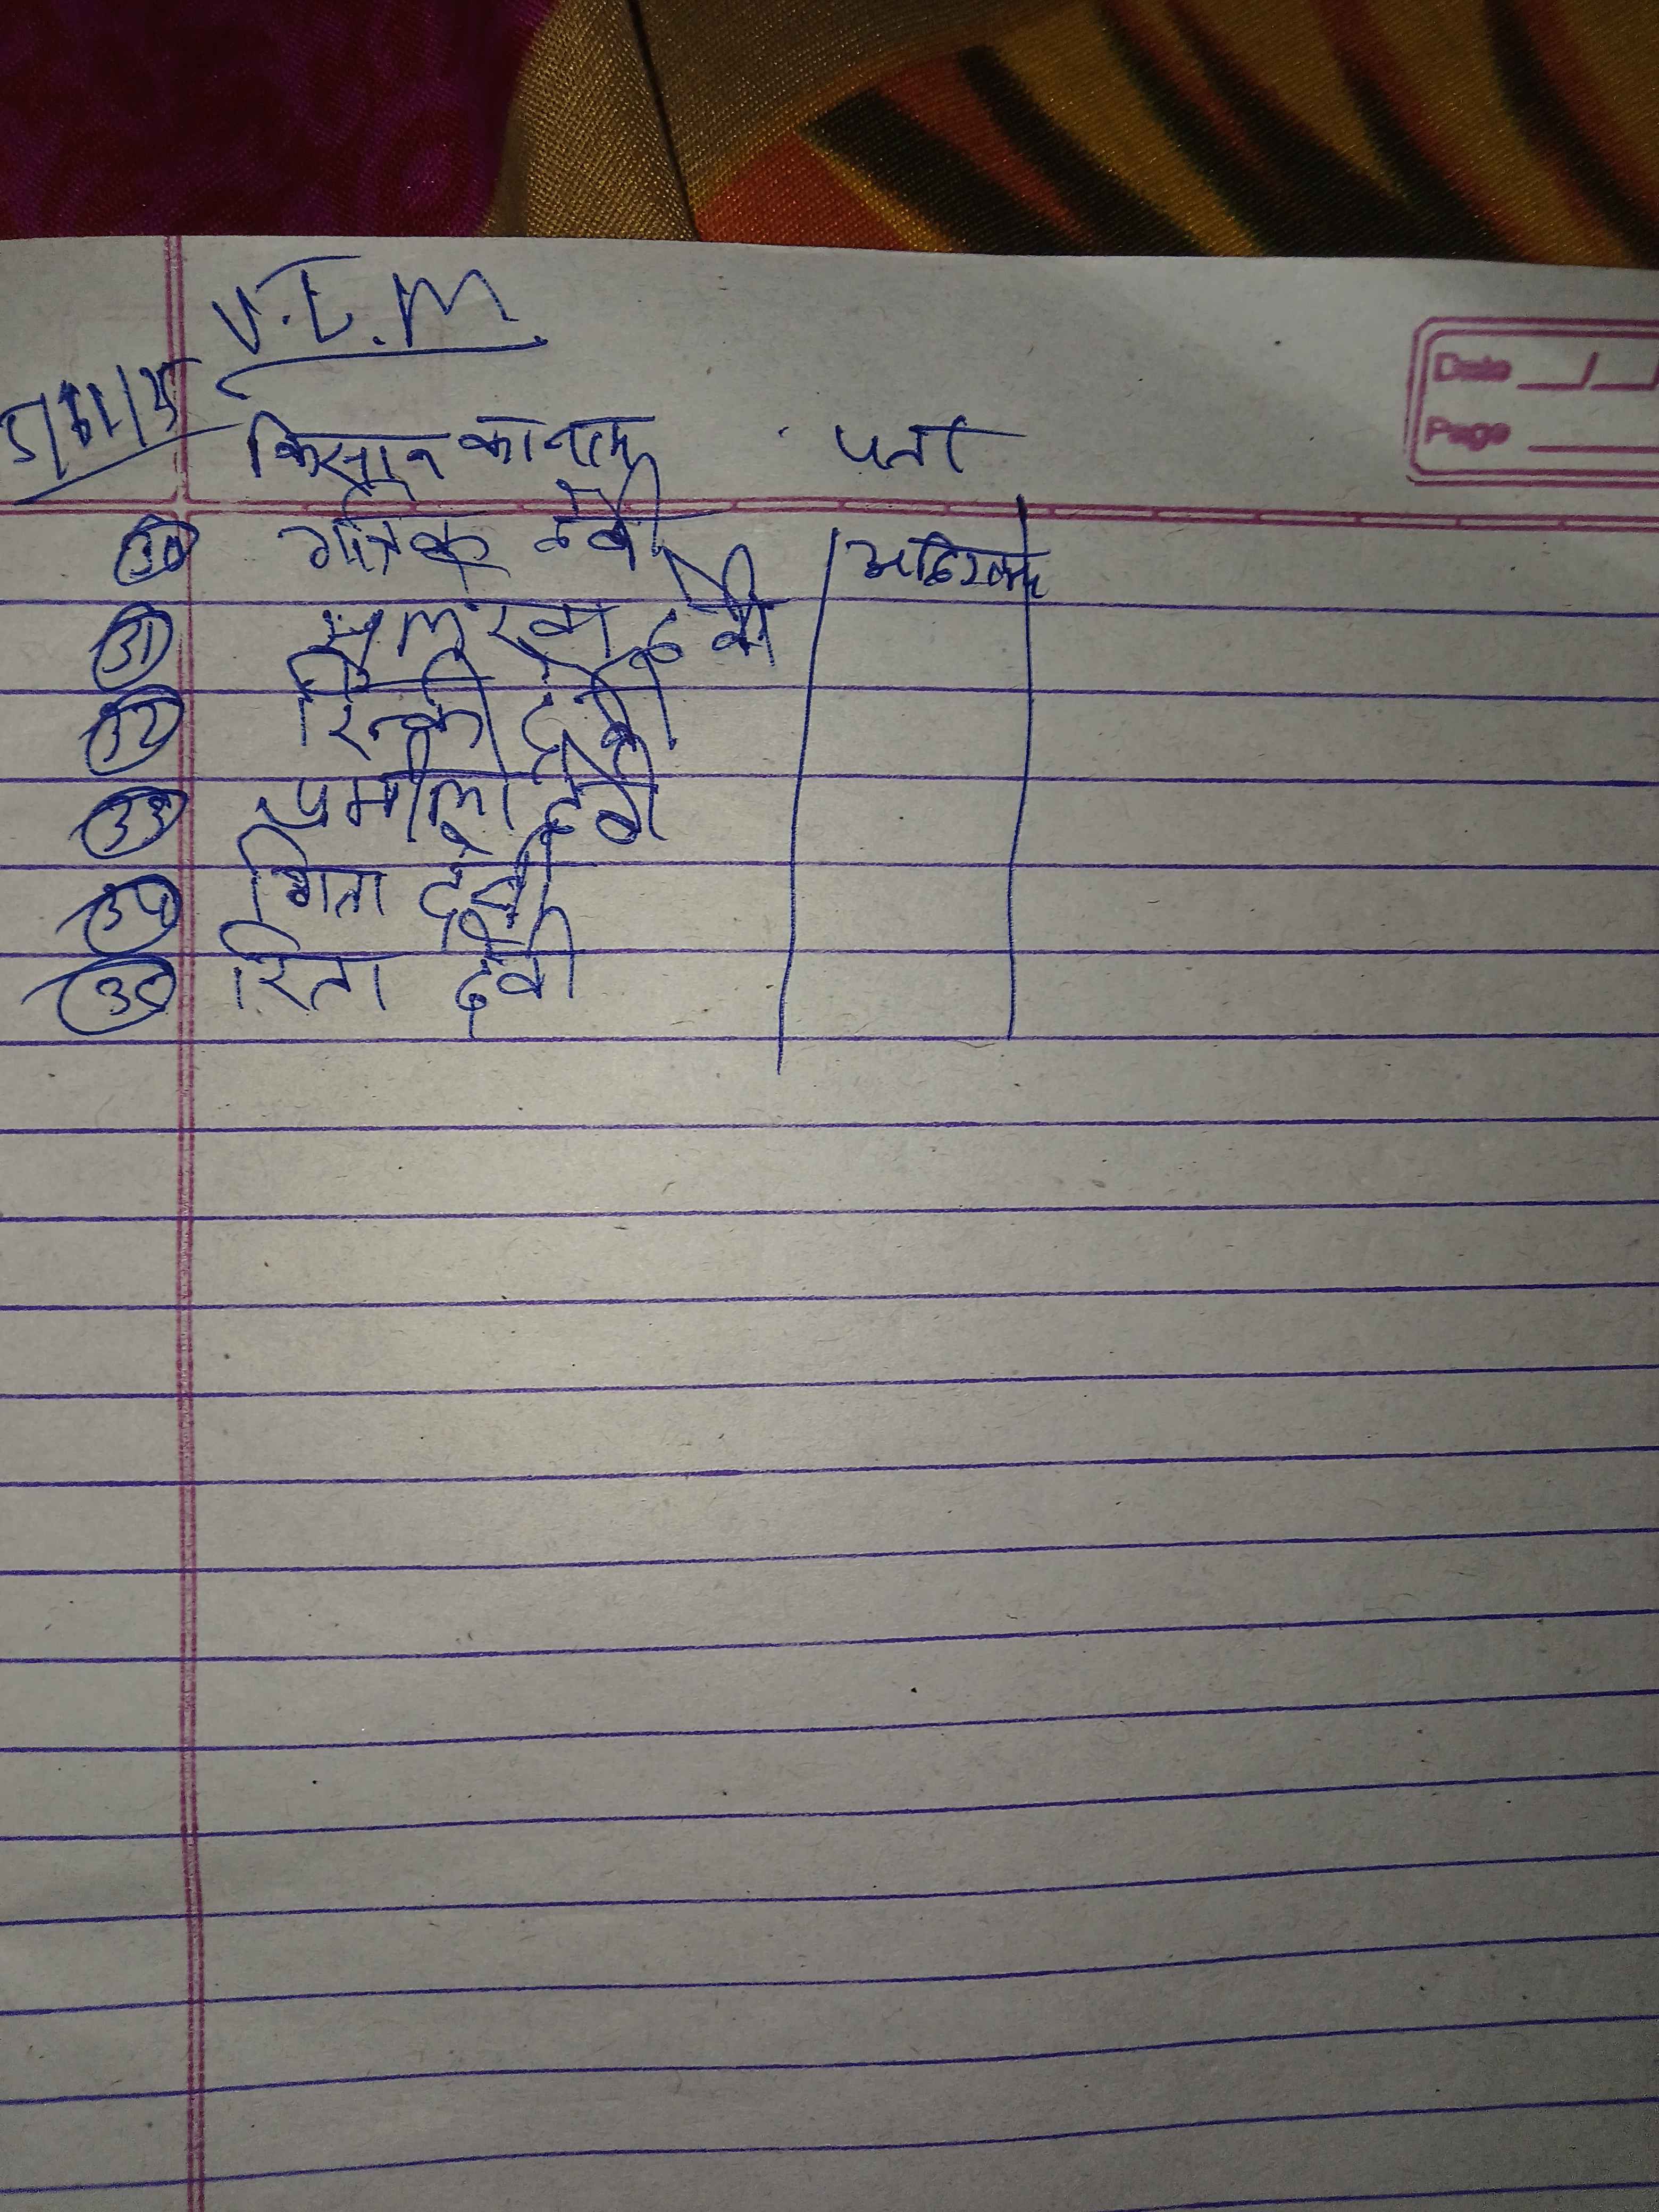 V.L.M.
5/11/25
किसान का नाम पता
Date __/__/
Page
30 देवी
31 देवी
32 रिन्की देवी
33 प्रमीला देवी
34 गिता देवी
35 रिता देवी